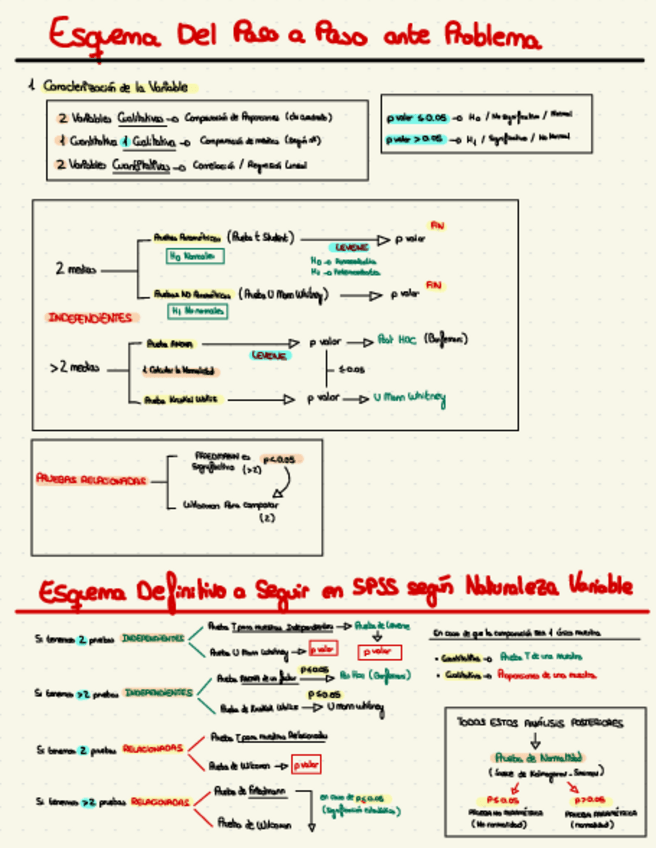 Esquema Del Paso a Paso ante Problema
1 Caracterización de la Variable
2 Variables Cualitativas → Comparación de Proporciones (chi cuadrado)
1 Cuantitativa 1 Cualitativa → Comparación de medias (según nº)
2 Variables Cuantitativas → Correlación / Regresión Lineal
p valor ≤ 0.05 → H0 / No significativo / Normal
p valor > 0.05 → H1 / Significativo / No Normal
Pruebas Paramétricas (Prueba t Student) → p valor
FIN
H0 Normales
LEVENE
2 medias
Pruebas NO Paramétricas (Prueba U Mann Whitney) → p valor
FIN
H1 No normales
INDEPENDIENTES
Prueba ANOVA → p valor → Post HOC (Bonferroni)
LEVENE
>2 medias
1. Calcular la Normalidad
≤ 0.05
Prueba Kruskal Wallis → p valor → U Mann Whitney
PRUEBAS RELACIONADAS
FRIEDMANN es p<0.05
significativo (>2)
Wilcoxon Para comparar
(2)
Esquema Definitivo a Seguir en SPSS según Naturaleza Variable
Si tenemos 2 pruebas INDEPENDIENTES
Prueba T para muestras Independientes → Prueba de Levene
Prueba U Mann Whitney → p valor
p valor
Si tenemos >2 pruebas INDEPENDIENTES
p≤0.05
Prueba ANOVA de un factor → Post Hoc (Bonferroni)
p≤0.05
Prueba de Kruskal Wallis → U mann whitney
Si tenemos 2 pruebas RELACIONADAS
Prueba T para muestras Relacionadas
Prueba de Wilcoxon → p valor
Si tenemos >2 pruebas RELACIONADAS
Prueba de Friedmann
Prueba de Wilcoxon
en caso de p≤0.05
(Significación estadística)
En caso de que la comparación sea 1 única muestra
• Cuantitativa → Prueba T de una muestra
• Cualitativa → Proporciones de una muestra
TODOS ESTOS ANÁLISIS POSTERIORES
Prueba de Normalidad
p≤0.05
p>0.05
PRUEBA NO PARAMÉTRICA
(No normalidad)
PRUEBA PARAMÉTRICA
(normalidad)